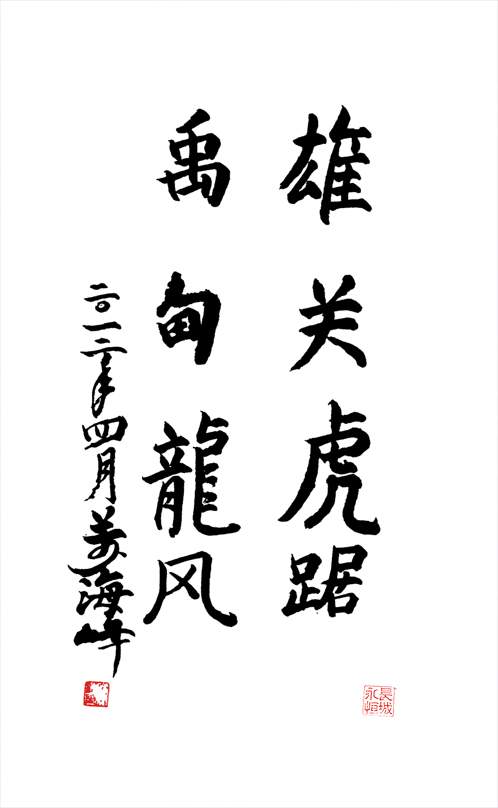 雄关虎踞
禹甸龍风
二〇一二年四月万海峰
长城永恒